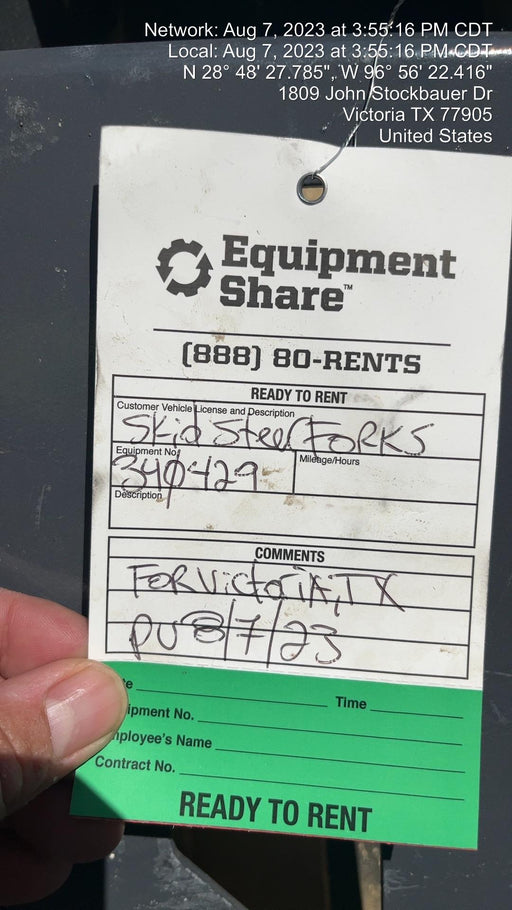 Network: Aug 7, 2023 at 3:55:16 PM CDT
Local: Aug 7, 2023 at 3:55:16 PM CDT
N 28° 48' 27.785", W 96° 56' 22.416"
1809 John Stockbauer Dr
Victoria TX 77905
United States
Equipment
Share™
(888) 80-RENTS
READY TO RENT
Customer Vehicle License and Description
Skid Steer FORKS
Equipment No.
Mileage/Hours
340429
Description
COMMENTS
FOR VictoriA, TX
PU 8/7/23
te
Time
ipment No.
mployee's Name
Contract No.
READY TO RENT